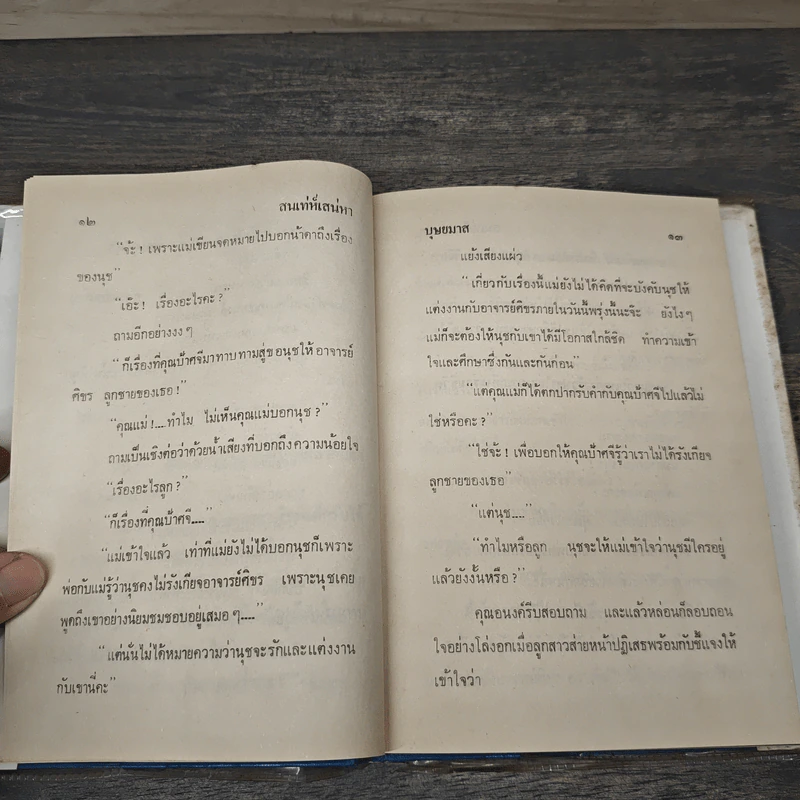 ๑๒
สนเท่ห์เสน่หา
“จ้ะ! เพราะแม่เขียนจดหมายไปบอกน้าดาถึงเรื่อง
ของนุช”
“เอ๊ะ! เรื่องอะไรคะ?”
ถามอีกอย่างงง ๆ
“ก็เรื่องที่คุณป้าศจีมาทาบทามสู่ขอนุชให้อาจารย์
ศิขร ลูกชายของเธอ!”
“คุณแม่!....ทำไม ไม่เห็นคุณแม่บอกนุช?”
ถามเป็นเชิงต่อว่าด้วยน้ำเสียงที่บอกถึงความน้อยใจ
“เรื่องอะไรลูก?”
“ก็เรื่องที่คุณป้าศจี....”
“แม่เข้าใจแล้ว เท่าที่แม่ยังไม่ได้บอกนุชก็เพราะ
พ่อกับแม่รู้ว่านุชคงไม่รังเกียจอาจารย์ศิขร เพราะนุชเคย
พูดถึงเขาอย่างนิยมชมชอบอยู่เสมอ ๆ....”
“แต่นั่นไม่ได้หมายความว่านุชจะรักและแต่งงาน
กับเขานี่คะ”
บุษยมาส
๑๓
แย้งเสียงแผ่ว
“เกี่ยวกับเรื่องนี้แม่ยังไม่ได้คิดที่จะบังคับนุชให้
แต่งงานกับอาจารย์ศิขรภายในวันนี้พรุ่งนี้นะจ๊ะ ยังไง ๆ
แม่ก็จะต้องให้นุชกับเขาได้มีโอกาสใกล้ชิด ทำความเข้า
ใจและศึกษาซึ่งกันและกันก่อน”
“แต่คุณแม่ก็ได้ตกปากรับคำกับคุณป้าศจีไปแล้วไม่
ใช่หรือคะ?”
“ใช่จ้ะ! เพื่อบอกให้คุณป้าศจีรู้ว่าเราไม่ได้รังเกียจ
ลูกชายของเธอ”
“แต่นุช....”
“ทำไมหรือลูก นุชจะให้แม่เข้าใจว่านุชมีใครอยู่
แล้วยังงั้นหรือ?”
คุณอนงค์รีบสอบถาม และแล้วหล่อนก็ลอบถอน
ใจอย่างโล่งอกเมื่อลูกสาวส่ายหน้าปฏิเสธพร้อมกับชี้แจงให้
เข้าใจว่า